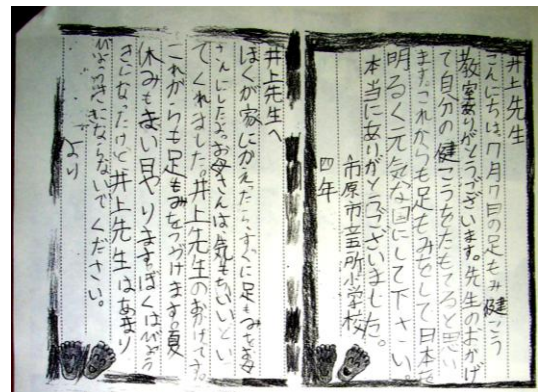 井上先生
こんにちは、7月7日の足もみ健こう
教室ありがとうございます。先生のおかげ
で自分の健こうをたもてると思い
ます。これからも足もみをして日本を
明るく元気な国にして下さい。
本当にありがとうございました。
市原市立五所小学校
四年
井上先生へ
ぼくが家にかえったら、すぐに足もみをお母
さんにしたよ。お母さんは、気もちいいとい
てくれました。井上先生のおかげです。
これからも足もみをつづけます。夏
休みもまい日やります。ぼくはびょう
きになったけど井上先生はあまり
びょうきにならないでください。
より